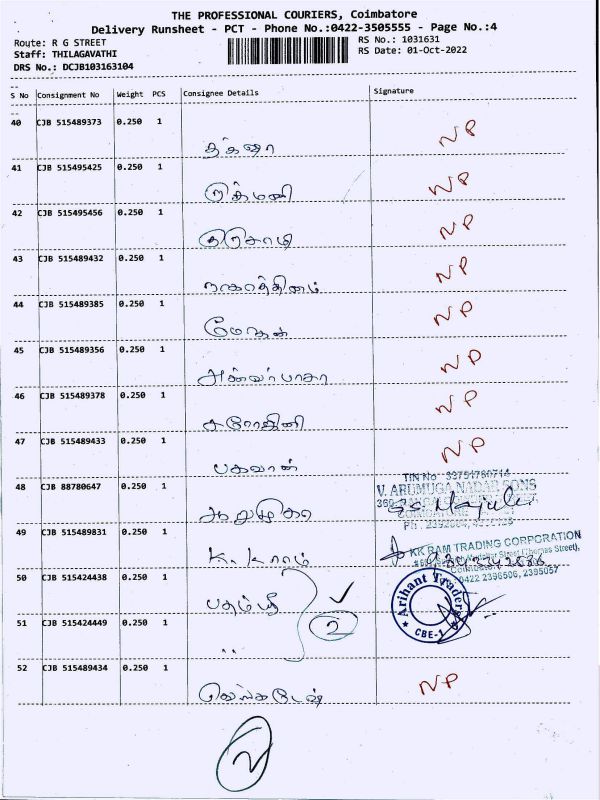 THE PROFESSIONAL COURIERS, Coimbatore
Delivery Runsheet - PCT - Phone No.:0422-3505555 - Page No.:4
Route: R G STREET
RS No.: 1031631
Staff: THILAGAVATHI
RS Date: 01-Oct-2022
DRS No.: DCJB103163104
S No Consignment No Weight PCS Consignee Details Signature
40 CJB 515489373 0.250 1 NP
41 CJB 515495425 0.250 1 ருக்மணி NP
42 CJB 515495456 0.250 1 NP
43 CJB 515489432 0.250 1 NP
44 CJB 515489385 0.250 1 மோகன் NP
45 CJB 515489356 0.250 1 அன்வர்பாசா NP
46 CJB 515489378 0.250 1 சரோஜினி NP
47 CJB 515489433 0.250 1 பகவான் NP
TIN No 33791760714
V. ARUMUGA NADAR SONS
48 CJB 88780647 0.250 1
49 CJB 515489831 0.250 1 K. Kராம்
KK RAM TRADING CORPORATION
0422 2396506, 2395057
50 CJB 515424438 0.250 1
Arihant Traders
CBE-1
2
51 CJB 515424449 0.250 1 "
52 CJB 515489434 0.250 1 வெங்கடேஷ் NP